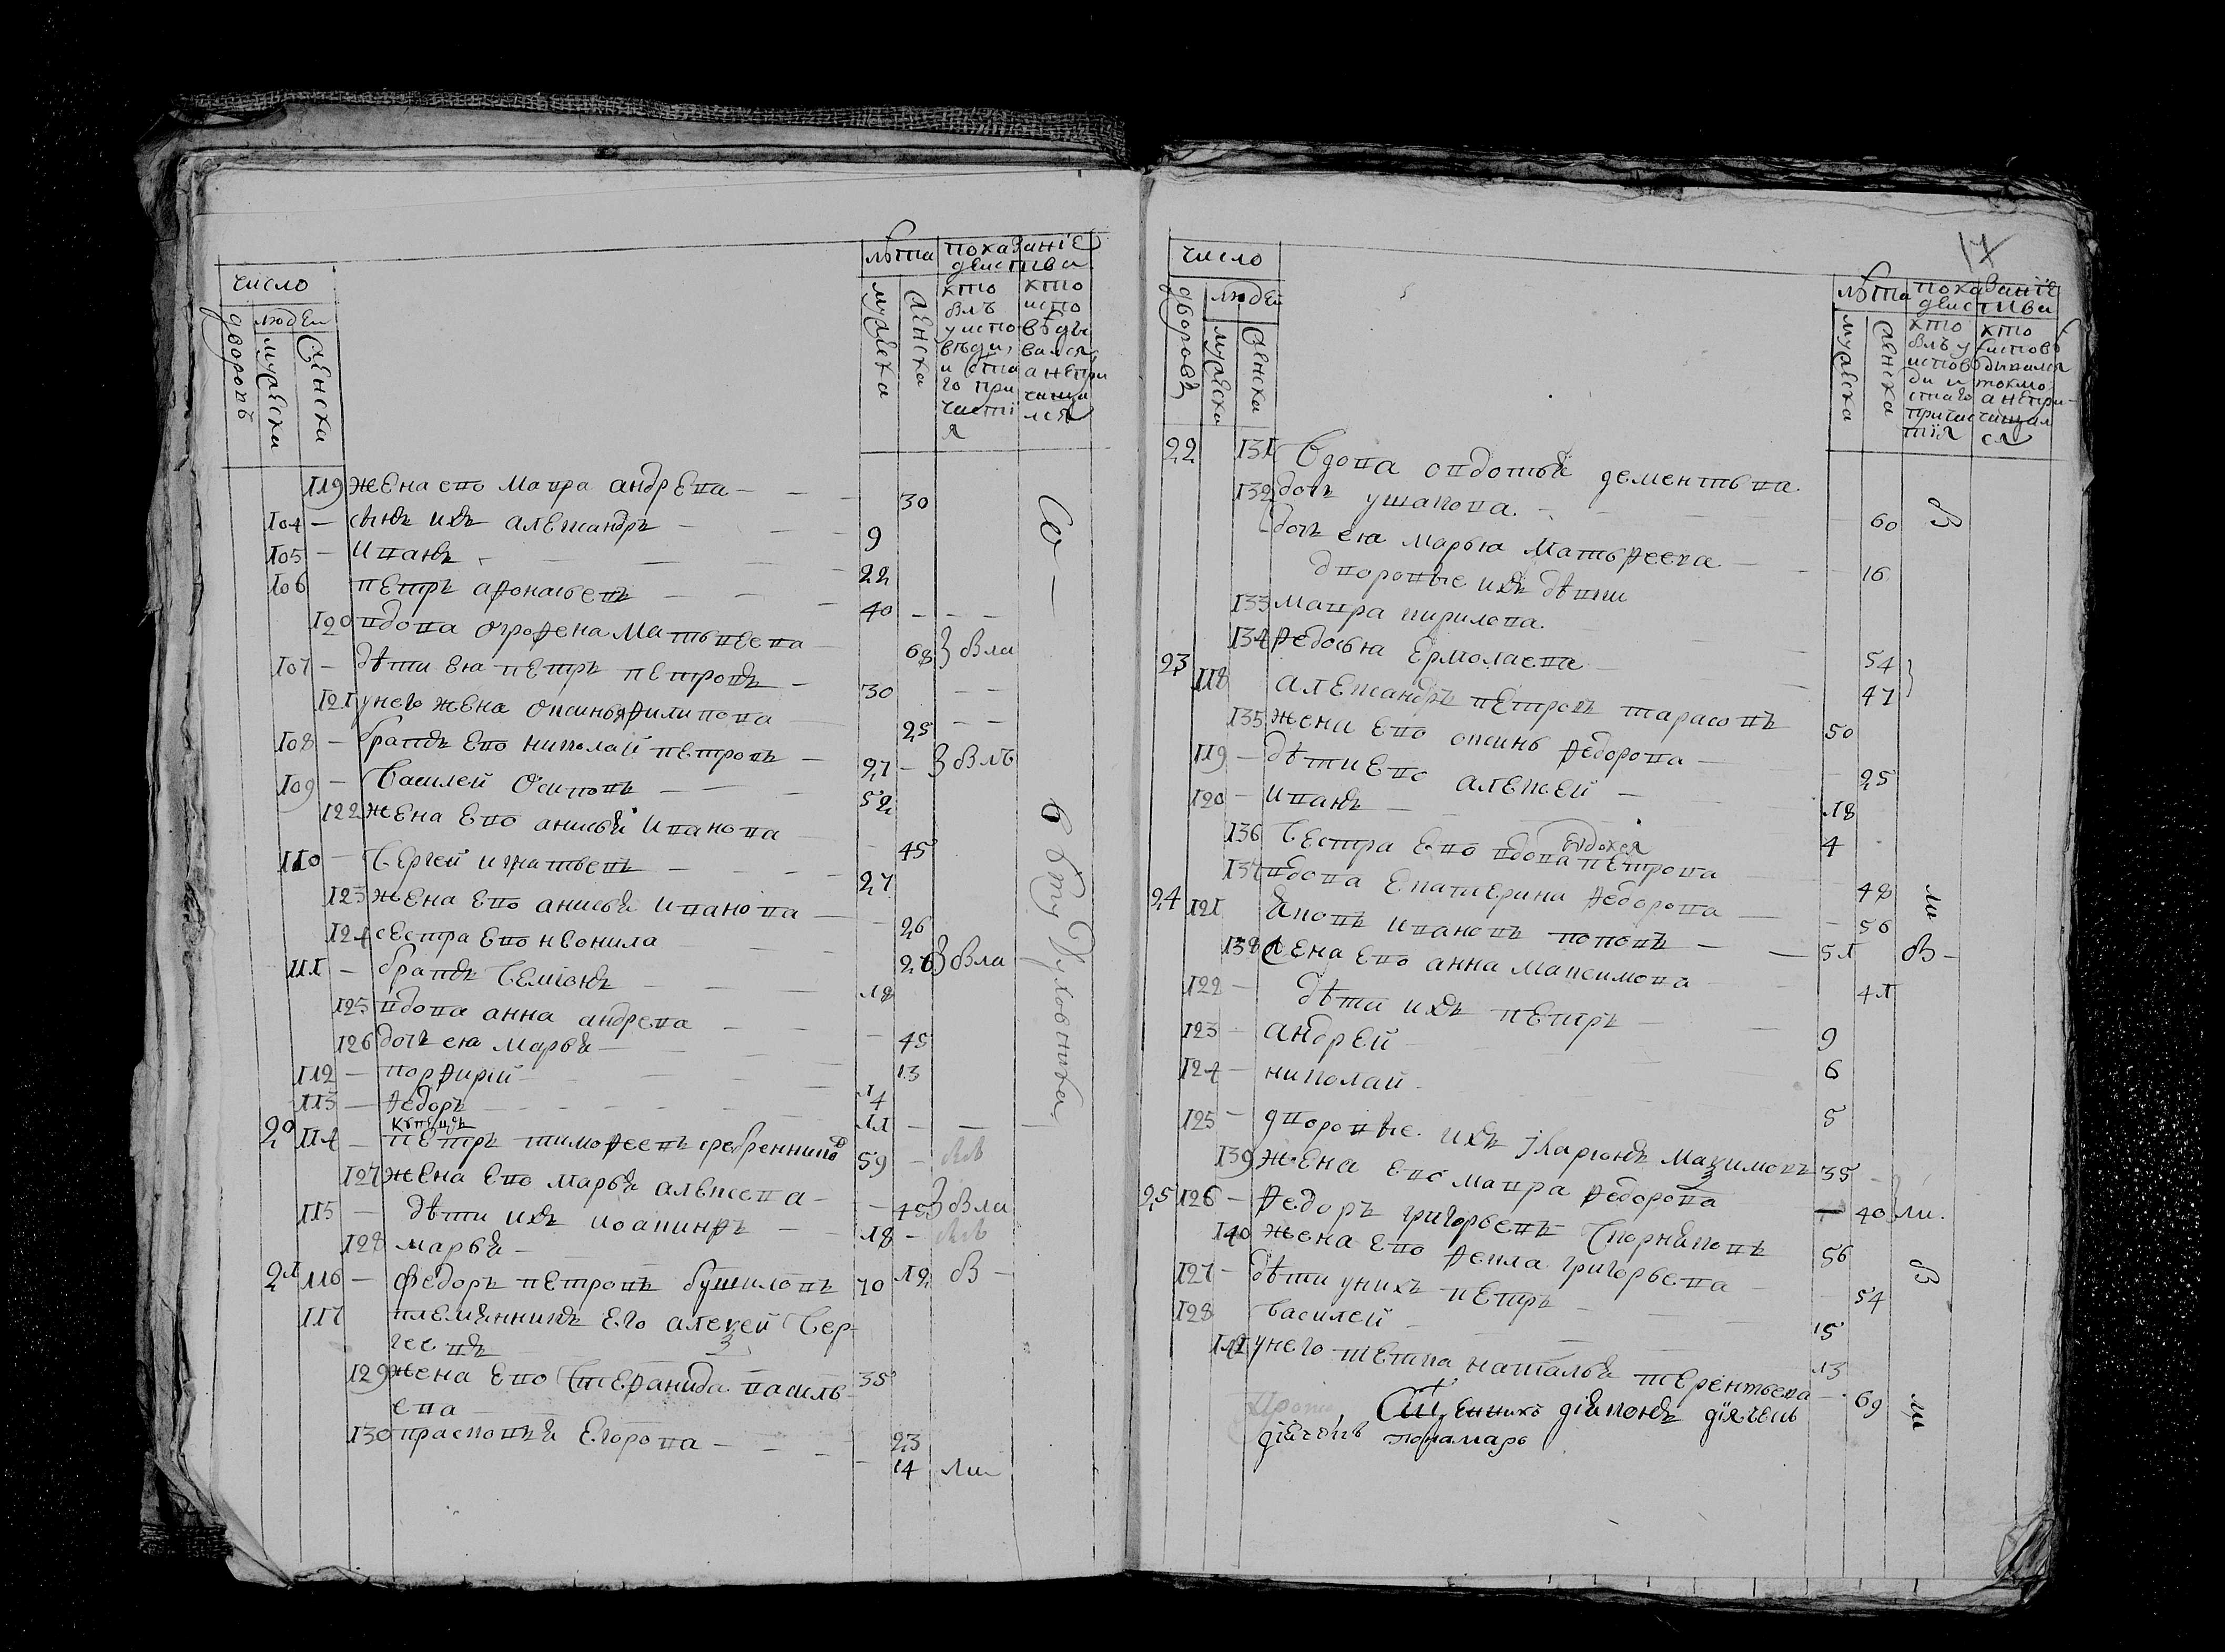 число
людеи
дворовъ
мужеска
женска
лѣта
мужеска
женска
показаніе
действа
кто
былъ
у испо
вѣди,
и ста
го при
части
я
кто
испо
вѣды
вался,
а непри
чаща
лся
119 жена ево Мавра андрева — 30
104 — сынъ ихъ алеѯандръ — 9
105 — Иванъ — 22
106 петръ афонасьевъ — 40
120 вдова огрофена Матьвеева — 68 была
107 — дѣти ея петръ петровъ — 30
121 у него жена оксинья филипова 25
108 — братъ ево николай петровъ — 27 былъ
109 — Василей Осиповъ — 52
122 жена ево анисья Иванова 45
110 — Сергей игнатьевъ — 27
123 жена ево анисья иванова — 26
124 сестра ево неонила 26 была
111 — братъ Семіонъ 18
125 вдова анна андрева — 45
126 дочь ея Марья — 13
112 — порфирей — 14
113 — федоръ — 11
купецъ
20 114 — петръ тимофеевъ серебренников 59
127 жена ево марья алеѯеева — 45 была
115 — дѣти ихъ иоакинфъ — 18
128 марья — 12
21 116 — Федоръ петровъ бушиловъ 70 в —
117 племянникъ его алекей Сер-
геевъ 35
129 жена ево Стефанида василь
ева 23
130 прасковья Егорова — 14 ли
в бту Духовника
17
число
людей
дворовъ
мужеска
женска
лѣта
мужеска
женска
показаніе
действа
кто
былъ у
испове
ди и
стаго
причас
тія
кто
испове
дывался
токмо
а непри-
чащал
ся
22 131 Вдова овдотья дементьева
ушакова. — 60 в
132 дочь ея марья Матьфеева — 16
дворовые ихъ дѣти
133 мавра кирилова. 54
134 федосья Ермолаева 47
23 118 алеѯандръ петровъ тарасовъ 50
135 жена ево оксинь федорова — 25
119 — дѣти ево алеѯей — 18
120 — иванъ — 4
евдокея
136 Сестра ево вдова петрова 48
137 вдова екатерина федорова — 56 ли
24 121 яковъ ивановъ поповъ — 51 в —
138 жена ево анна максимова 41
122 — дѣти ихъ петръ — 9
123 — андрей 6
124 — николай 5
125 — дворовые ихъ іларіонъ мазимовъ 35
139 жена ево мавра федорова — 40 ли.
25 126 — федоръ григорьевъ Скорняковъ 56
140 жена ево фекла григорьева — 54 в
127 — дѣти у нихъ петръ — 15
128 василей — 13
141 у него тетка наталья терентьева — 69 ли
Сщенникъ діяконъ діячекъ
діячекъ понамарь